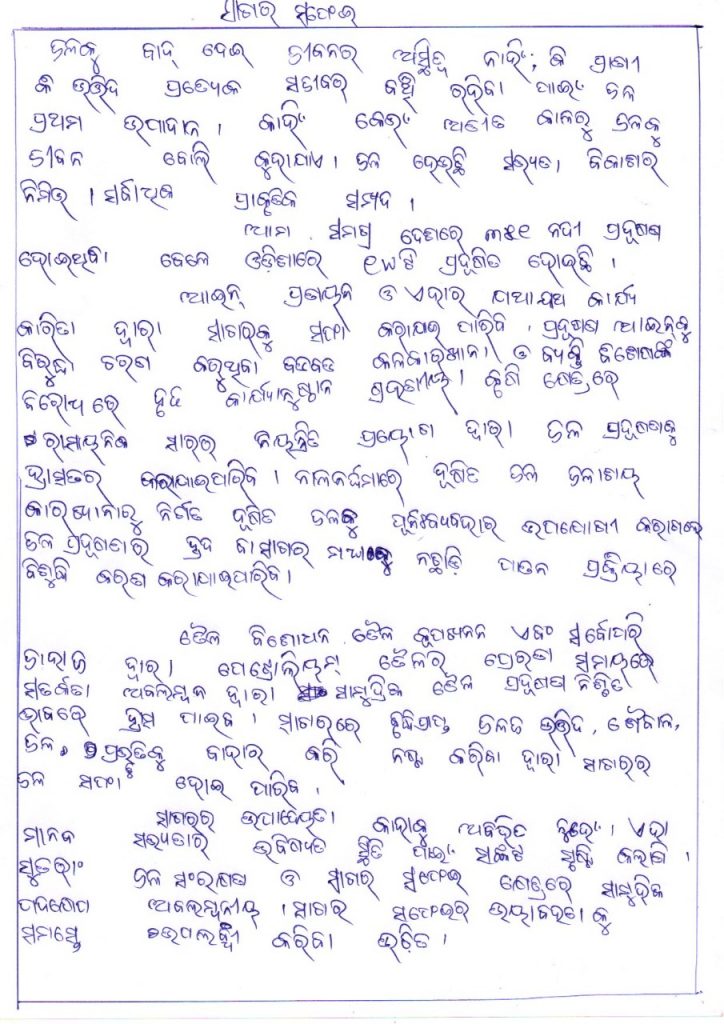 ସାଗର ସଫେଇ
ଜଳକୁ ବାଦ୍ ଦେଇ ଜୀବନର ଅସ୍ଥିତ୍ୱ ନାହିଁ, କି ପ୍ରାଣୀ
କି ଉଦ୍ଭିଦ ପ୍ରତ୍ୟେକ ସଜୀବର ବଞ୍ଚି ରହିବା ପାଇଁ ଜଳ
ପ୍ରଥମ ଉପାଦାନ । କାହିଁ କେଉଁ ଅତୀତ କାଳରୁ ଜଳକୁ
ଜୀବନ ବୋଲି କୁହାଯାଏ । ଜଳ ହେଉଛି ସଭ୍ୟତା ବିକାଶର
ନିମିତ୍ତ । ସର୍ବାଧିକ ପ୍ରାକୃତିକ ସମ୍ପଦ ।
ଆମ ସମଗ୍ର ଦେଶରେ ୩୫୧ ନଦୀ ପ୍ରଦୂଷଣ
ହୋଇଥିବା ବେଳେ ଓଡ଼ିଶାରେ ୧୯ଟି ପ୍ରଦୂଷିତ ହୋଇଛି ।
ଆଇନ୍ ପ୍ରଣୟନ ଓ ଏହାର ଯଥାଯଥ କାର୍ଯ୍ୟ
କାରିତା ଦ୍ୱାରା ସାଗରକୁ ସଫା କରାଯାଇ ପାରିବ । ପ୍ରଦୂଷଣ ଆଇନକୁ
ବିରୁଦ୍ଧା ଚରଣ କରୁଥିବା ବଡବଡ କଳକାରଖାନା ଓ ବ୍ୟକ୍ତି ବିଶେଷଙ୍କ
ବିରୋଧରେ ଦୃଢ କାର୍ଯ୍ୟାନୁଷ୍ଠାନ ଗ୍ରହଣୀୟ । କୃଷି କ୍ଷେତ୍ରରେ
ରାସାୟନିକ ସାରର ନିୟନ୍ତ୍ରିତ ପ୍ରୟୋଗ ଦ୍ୱାରା ଜଳ ପ୍ରଦୂଷଣକୁ
ହ୍ରାସତର କରାଯାଇପାରିବ । ନାଳନର୍ଦ୍ଦମାରେ ଦୂଷିତ ଜଳ ଜଳାଶୟ
କାରଖାନାରୁ ନିର୍ଗତ ଦୂଷିତ ଜଳକୁ ପୂନଃବ୍ୟବହାର ଉପଯୋଗୀ କରାଗଲେ
ଜଳ ପ୍ରଦୂଷଣର ହ୍ରଦ ବା ସାଗର ମଧ୍ୟକୁ ନଛାଡ଼ି ପାତନ ପ୍ରକ୍ରିୟାରେ
ବିଶୁଦ୍ଧି କରଣ କରାଯାଇପାରିବ ।
ତୈଳ ବିଶୋଧନ ତୈଳ କୂପଖନନ ଏବଂ ସର୍ବୋପରି
ଜାହାଜ ଦ୍ୱାରା ପେଟ୍ରୋଲିୟମ୍ ତୈଳର ପ୍ରେରଣ ସମୟରେ
ସତର୍କତା ଅବଲମ୍ବନ ଦ୍ୱାରା ସାମୁଦ୍ରିକ ତୈଳ ପ୍ରଦୂଷଣ ନିଶ୍ଚିତ
ଭାବରେ ହ୍ରାସ ପାଇବ । ସାଗରରେ ବୃଦ୍ଧିପ୍ରାପ୍ତ ଜଳଜ ଉଦ୍ଭିଦ, ଶୈବାଳ,
ଜଳ ପ୍ରଭୃତିକୁ ବାହାର କରି ନଷ୍ଟ କରିବା ଦ୍ୱାରା ସାଗରର
ଜଳ ସଫା ହୋଇ ପାରିବ ।
ସାଗରର ଉପାଦେୟତା କାହାକୁ ଅବିଦିତ ନୁହେଁ । ଏହା
ମାନବ ସଭ୍ୟତାର ଭବିଷ୍ୟତ ସ୍ଥିତି ପାଇଁ ସଙ୍କଟ ସୃଷ୍ଟି କଲାଣି ।
ସୁତରାଂ ଜଳ ସଂରକ୍ଷଣ ଓ ସାଗର ସଫେଇ କ୍ଷେତ୍ରରେ ସାମୁଦ୍ରିକ
ପଦକ୍ଷେପ ଅବଲମ୍ବନୀୟ । ସାଗର ସଫେଇର ଭୟାବହତା କୁ
ସମସ୍ତେ ଉପଲବ୍ଧୀ କରିବା ଉଚିତ ।